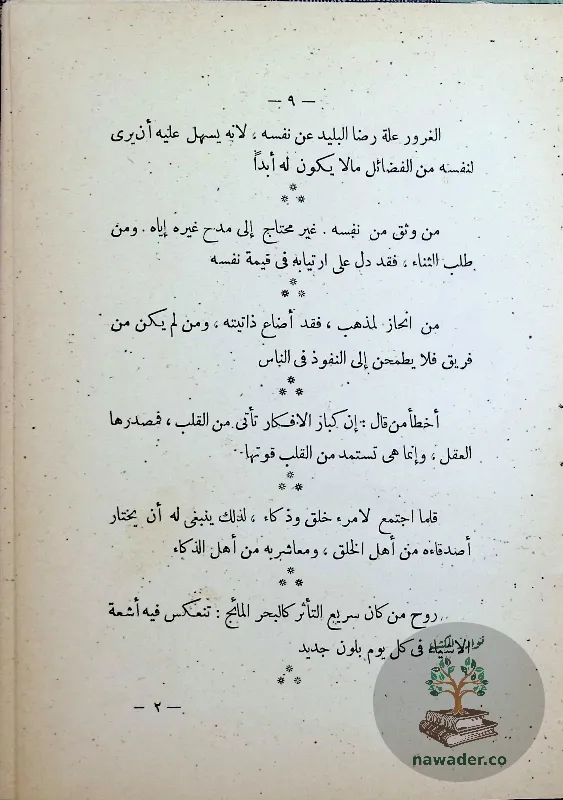 — ٩ —
الغرور علة رضا البليد عن نفسه ، لانه يسهل عليه أن يرى
لنفسه من الفضائل مالا يكون له أبداً
من وثق من نفسه . غير محتاج إلى مدح غيره إياه . ومن
طلب الثناء ، فقد دل على ارتيابه فى قيمة نفسه
من انحاز لمذهب ، فقد أضاع ذاتيته ، ومن لم يكن من
فريق فلا يطمحن إلى النفوذ فى الناس
أخطأ من قال : إن كبار الافكار تأتى من القلب ، فمصدرها
العقل ، وإنما هى تستمد من القلب قوتها
قلما اجتمع لامرء خلق وذكاء ، لذلك ينبغى له أن يختار
أصدقاءه من أهل الخلق ، ومعاشريه من أهل الذكاء
روح من كان سريع التأثر كالبحر المائج : تنعكس فيه أشعة
الاشياء فى كل يوم بلون جديد
— ٢ —
nawader.co